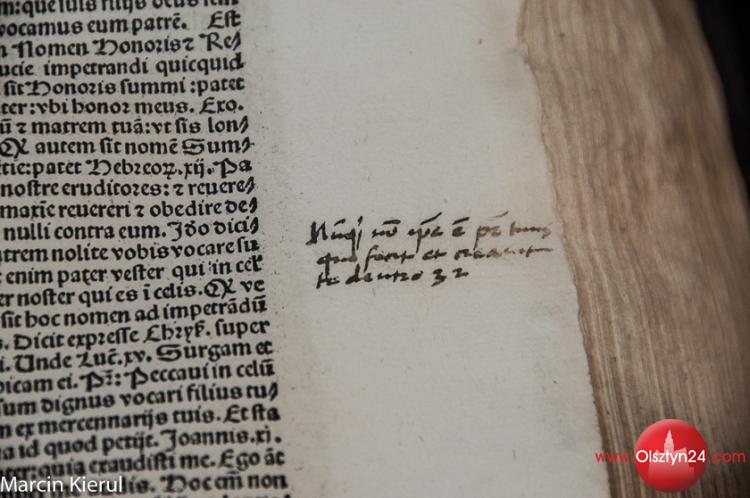 m: que suis filijs deus sem
vocamus eum patrē. Est
n Nomen Honoris ⁊ Re⸗
ucie impetrandi quicquid
sit Honoris summi : patet
ter: vbi honor meus. Exo.
ū ⁊ matrem tuā: vt sis lon⸗
autem sit nomē Sum⸗
tie: patet Hebreoꝝ. xij. Pa
nostre eruditores: ⁊ reuere⸗
maxīe reuereri ⁊ obedire de⸗
nulli contra eum. Iđo dici⸗
atrem nolite vobis vocare su
t enim pater vester qui in cel
er noster qui es ī celis. ve
sit hoc nomen ad impetrādū
s. Dicit expresse Chryſ. super
i. Unde Luc̄. xv. Surgam et
icam ei. Pr̄: Peccaui in celū
sum dignus vocari filius tu⸗
n ex mercennarijs tuis. Et sta
a id quod petijt. Joannis. xi.
ter: quia exaudisti me. Ego āt
lis. Hoc em̄ non
Nūqͥd nō ip̄e ē pr̄ tuus
qui fecit et creauit
te deutro 32
Marcin Kierul
www.Olsztyn24.com